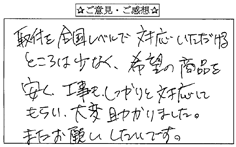 ☆ご意見・ご感想☆
取付を全国レベルで対応いただける
ところは少なく、希望の商品を
安く、工事も、しっかりと対応して
もらい、大変助かりました。
またお願いしたいです。